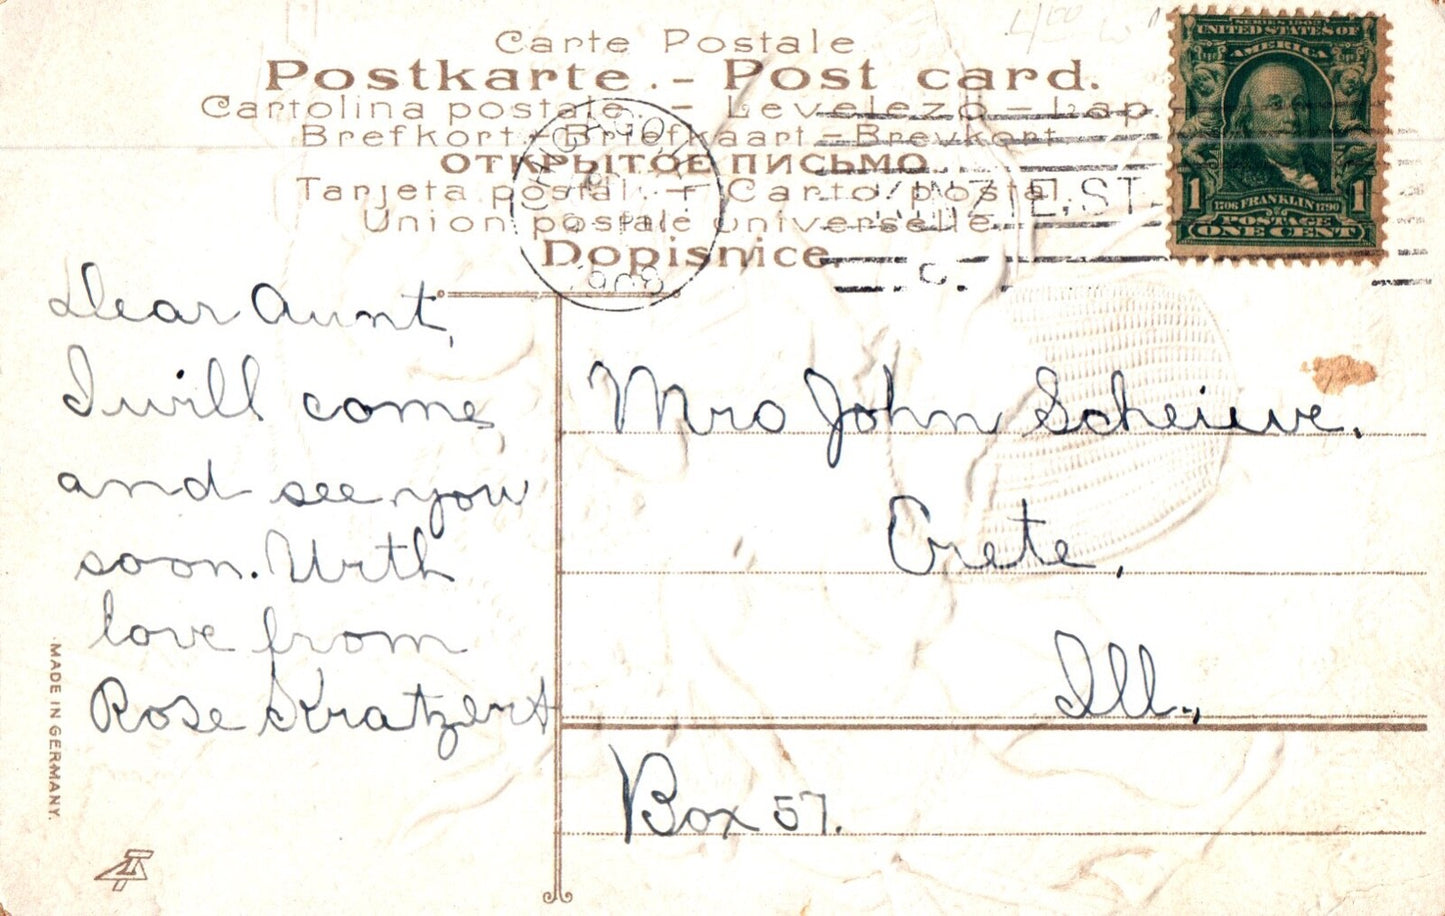 Carte Postale
Postkarte. - Post card.
Cartolina postale. - Levelezo - Lap
Brefkort - Briefkaart - Brevkort
ОТКРЫТОЕ ПИСЬМО.
Tarjeta postal. - Carto postal
Union postale universelle
Dopisnice.
SERIES 1902
UNITED STATES OF
AMERICA
1 1706 FRANKLIN 1790 1
POSTAGE
ONE CENT
CHICAGO, ILL.
1908
KINZIE. ST.
Dear Aunt,
I will come,
and see you
soon. With
love from
Rose Kratzert
Mrs John Scheiwe.
Crete,
Ill.,
Box 57.
MADE IN GERMANY.